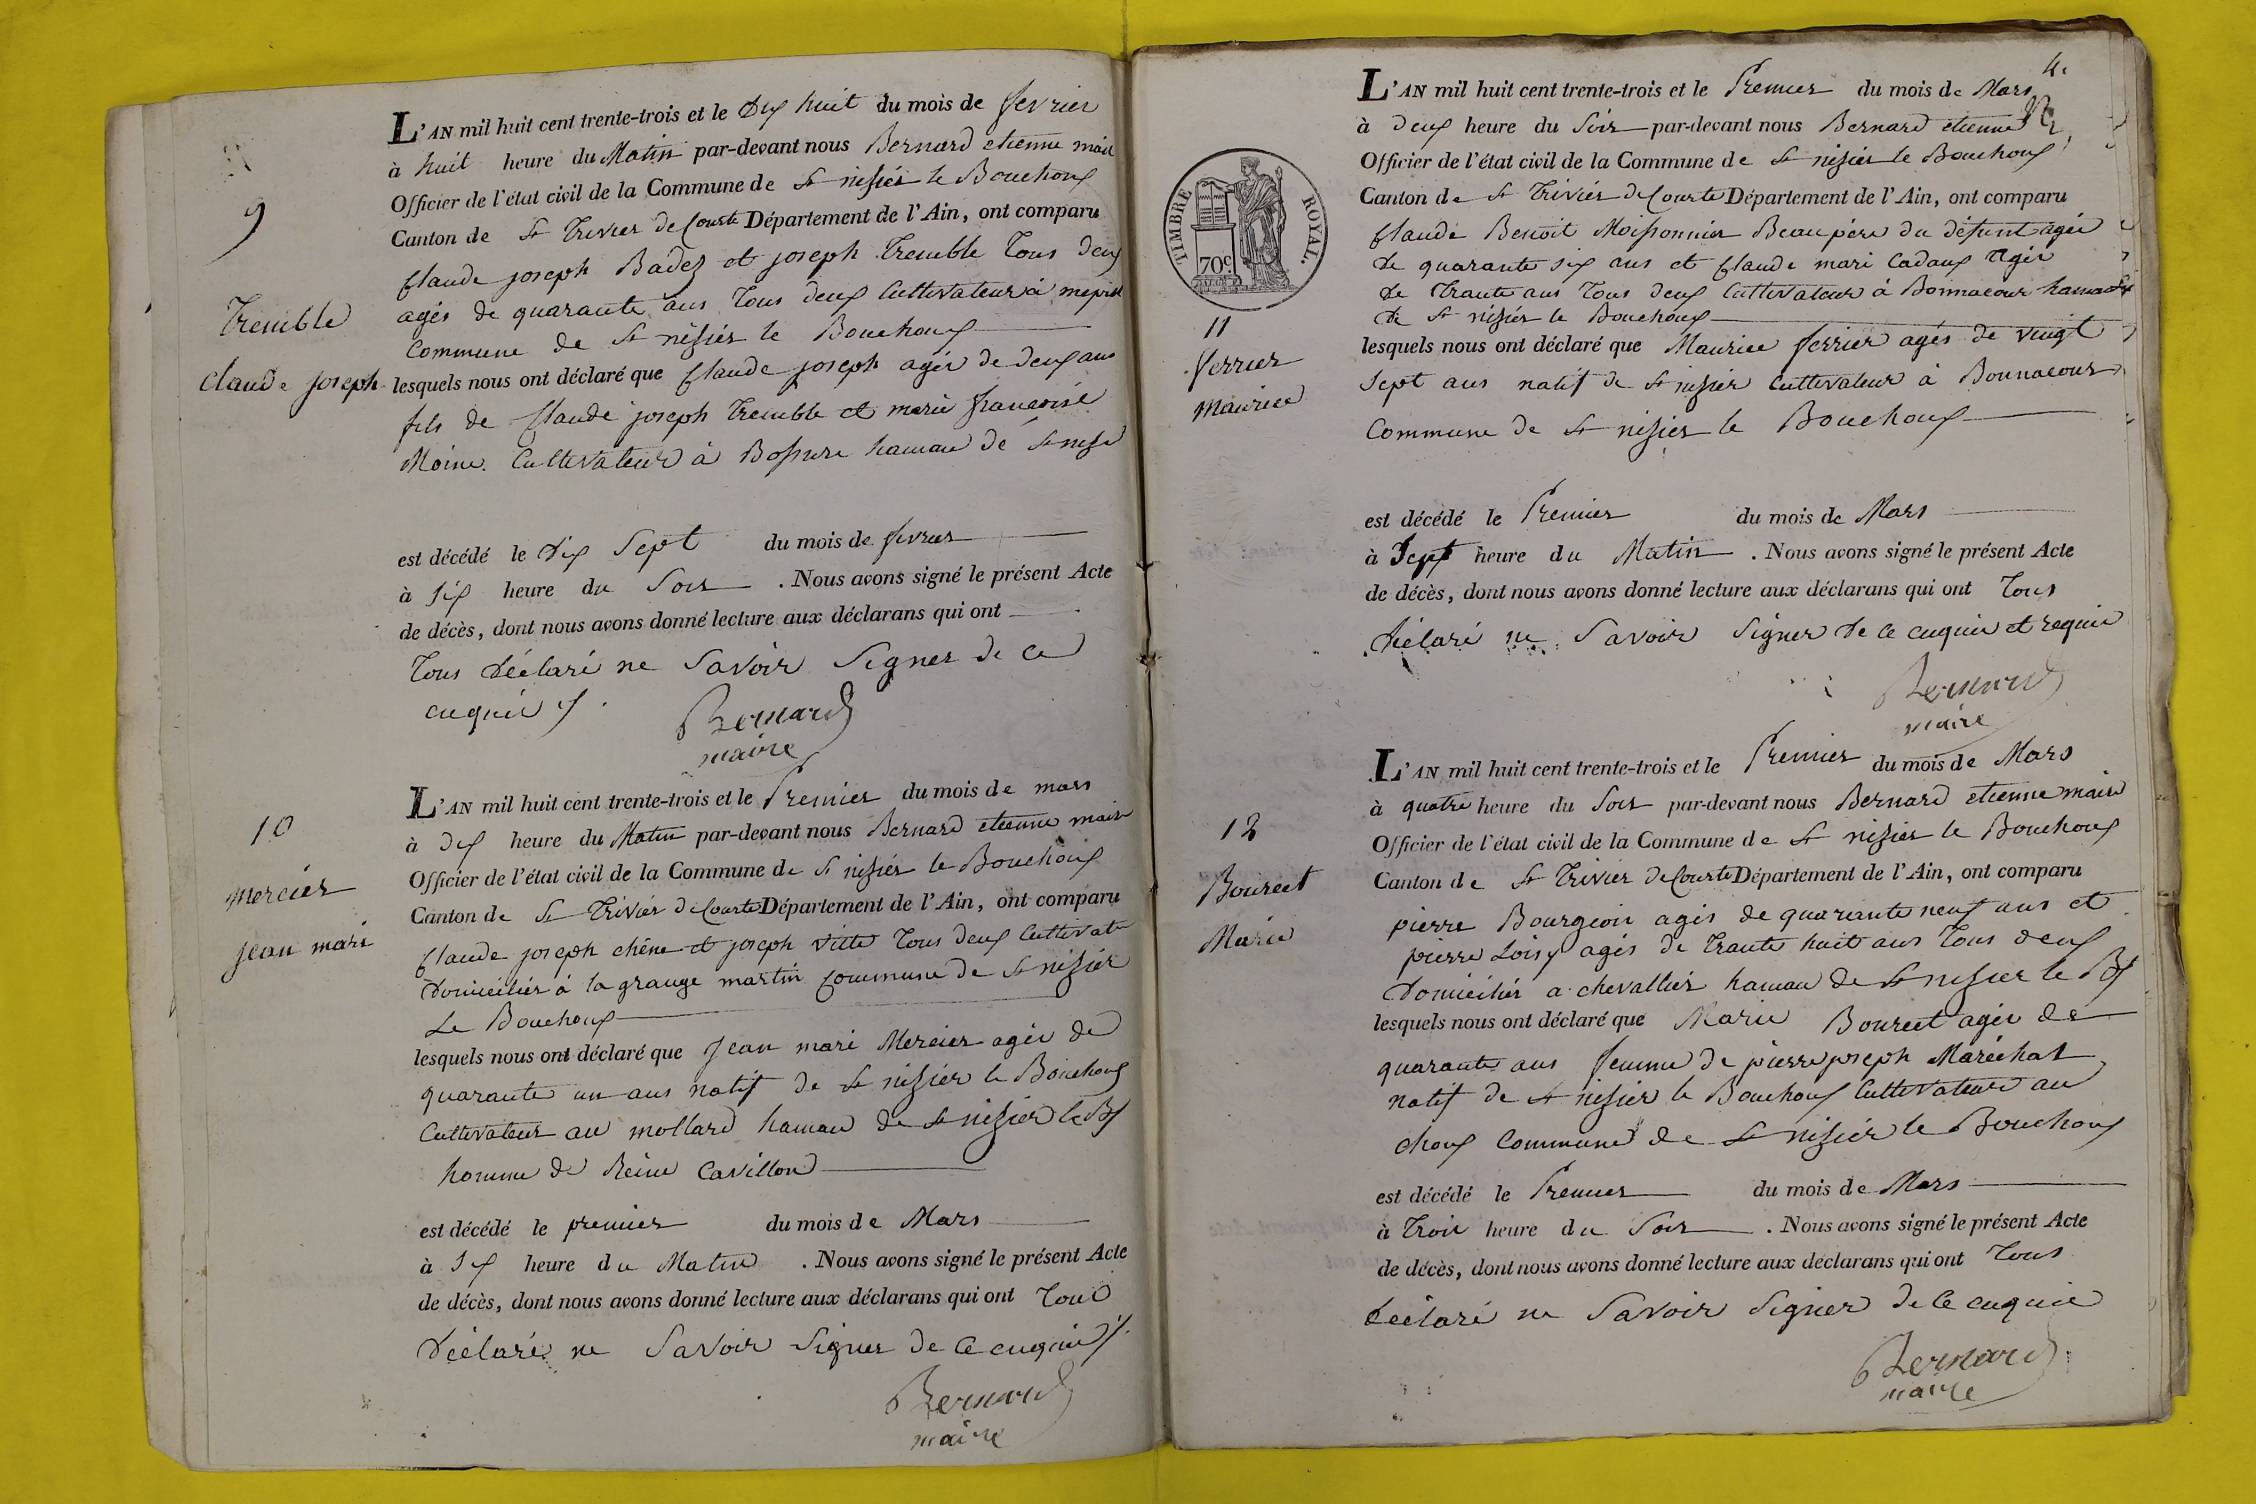 9
Tremble
Claude joseph
L'AN mil huit cent trente-trois et le Dix huit du mois de fevrier
à huit heure du Matin par-devant nous Bernard etienne mair
Officier de l'état civil de la Commune de St nisiér le Bouchoux
Canton de St Trivier de Courte Département de l'Ain, ont comparu
Claude joseph Badez et joseph Tremble Tous deux
agés de quarante ans Tous deux Cultivateur à
Commune de St nésiér le Bouchoux
lesquels nous ont déclaré que Claude joseph agée de deux ans
fils de Claude joseph Tremble et marie francoise
Moine Cultivateur à Bossure hamau de St
est décédé le Dix Sept du mois de fevrier
à Six heure du Soir . Nous avons signé le présent Acte
de décès, dont nous avons donné lecture aux déclarans qui ont
Tous déclaré ne Savoir Signer de ce
enquie
Bernard
maire
10
Mercier
jean mari
L'AN mil huit cent trente-trois et le Premier du mois de mars
à Dix heure du Matin par-devant nous Bernard etienne maire
Officier de l'état civil de la Commune de St nisiér le Bouchoux
Canton de St Triviér de Courte Département de l'Ain, ont comparu
Claude joseph chêne et joseph vitte Tous deux Cultivat
Domiciliér à la grange martin Commune de St nisiér
Le Bouchoux
lesquels nous ont déclaré que Jean mari Mercier agée de
quarante un ans natif de St nisiér le Bouchoux
Cultivateur au mollard hamau de St nisiér le Bx
homme de Reine Cavillon
est décédé le premier du mois de Mars
à Six heure du Matin . Nous avons signé le présent Acte
de décès, dont nous avons donné lecture aux déclarans qui ont Tous
Déclaré ne Savoir Signer de Ce enquie
Bernard
maire
4.
TIMBRE ROYAL.
70c.
11
ferrier
maurice
L'AN mil huit cent trente-trois et le Premier du mois de Mars
à deux heure du Soir par-devant nous Bernard etienne
Officier de l'état civil de la Commune de St nisiér le Bouchoux
Canton de St Triviér de Courte Département de l'Ain, ont comparu
Claude Benoit Moissonnier Beaupére du défunt agée
de quarante six ans et Claude mari Cadaux agée
de Traute ans Tous deux Cultivateur à Bonnacour hamau
de St nisiér le Bouchoux
lesquels nous ont déclaré que Maurice ferrier agés de vingt
Sept ans natif de St nisiér Cultivateur à Bonnacour
Commune de St nisiér le Bouchoux
est décédé le Premier du mois de Mars
à Sept heure du Matin . Nous avons signé le présent Acte
de décès, dont nous avons donné lecture aux déclarans qui ont Tous
Déclaré ne Savoir Signer de ce enquie et requie
Bernard
maire
12
Bourcet
Marie
L'AN mil huit cent trente-trois et le Premier du mois de Mars
à quatre heure du Soir par-devant nous Bernard etienne maire
Officier de l'état civil de la Commune de St nisiér le Bouchoux
Canton de St Trivier de Courte Département de l'Ain, ont comparu
pierre Bourgeois agés de quarante neuf ans et
pierre Loisy agés de Traute huit ans Tous deux
Domiciliér a chevallier hamau de St nisier le Bx
lesquels nous ont déclaré que Marie Bourcet agée de
quarante ans femme de pierre joseph Maréchal
natif de St nisier le Bouchoux Cultivateur au
choux Commune de St nisiér le Bouchoux
est décédé le Premier du mois de Mars
à Trois heure du Soir . Nous avons signé le présent Acte
de décès, dont nous avons donné lecture aux déclarans qui ont Tous
déclaré ne Savoir Signer de Ce enquie
Bernard
maire